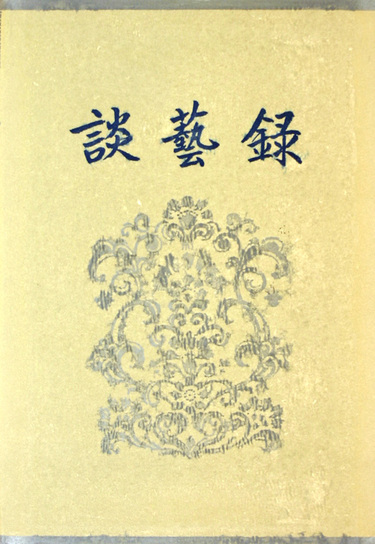 談藝録